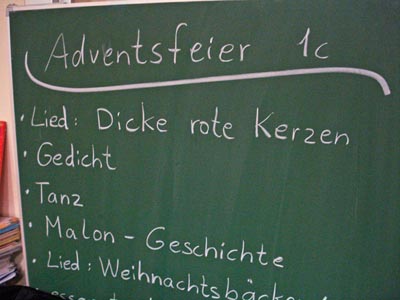 Adventsfeier 1c
• Lied: Dicke rote Kerzen
• Gedicht
• Tanz
• Malon - Geschichte
• Lied: Weihnachtsbäcke